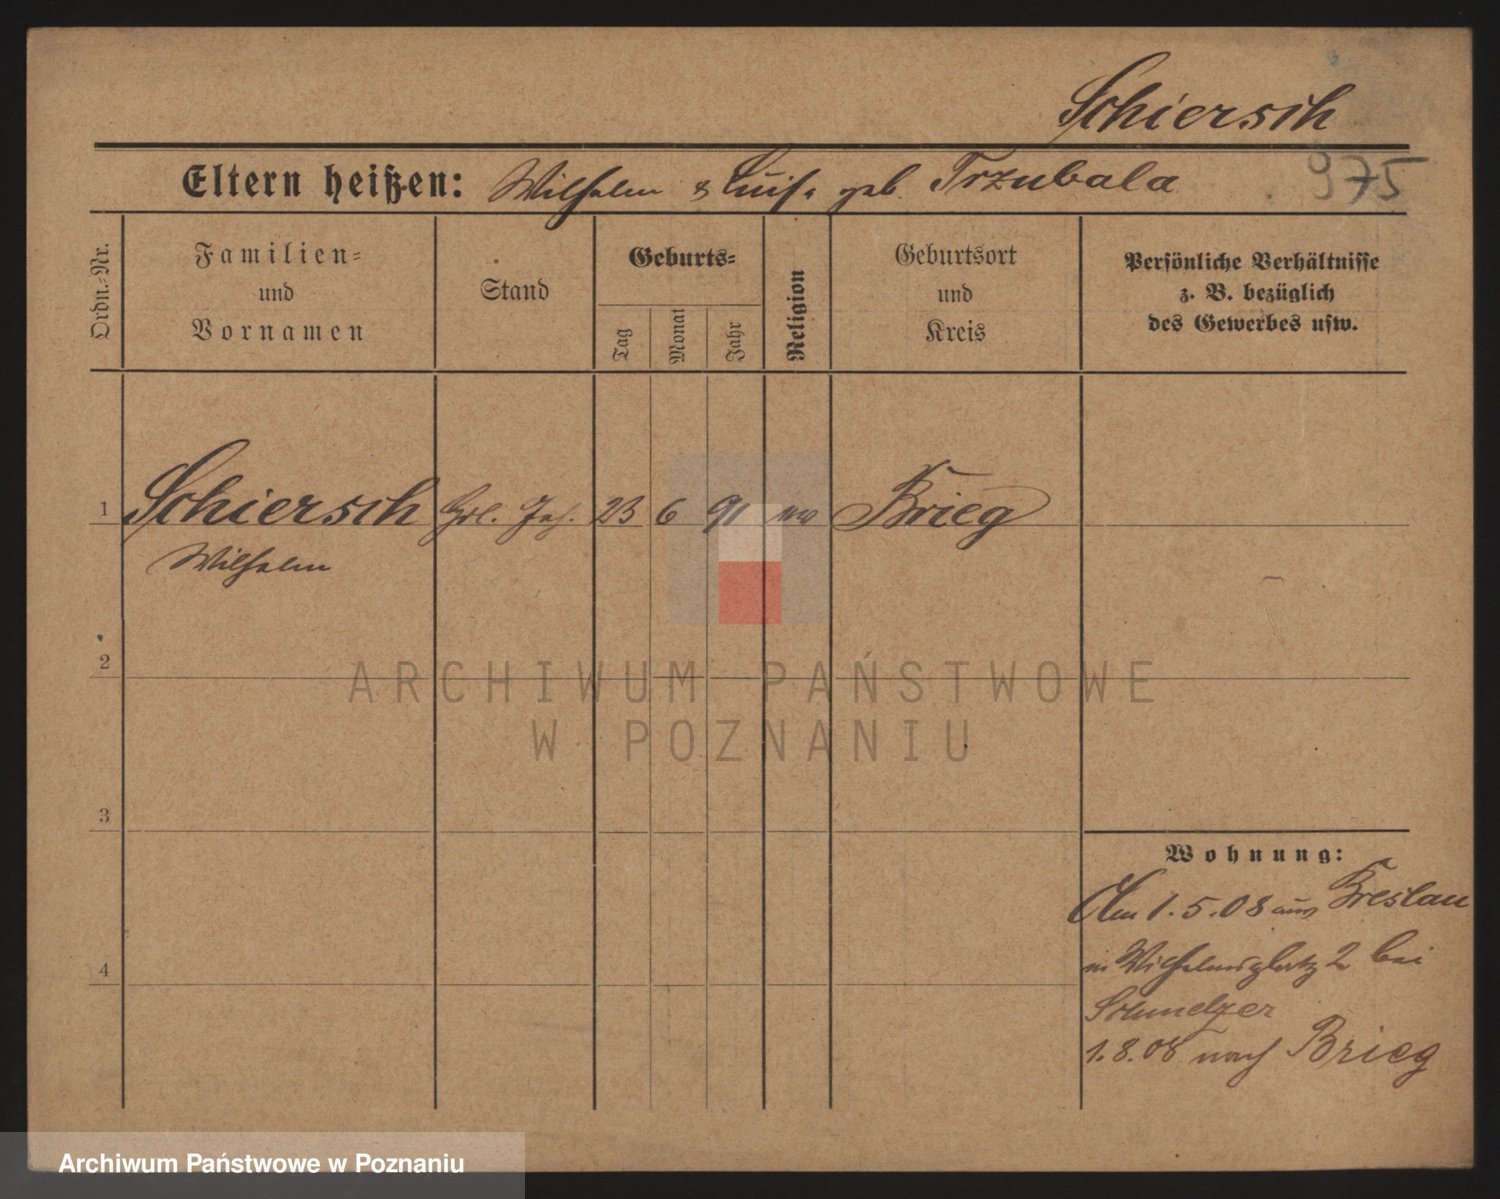 Schiersch
Eltern heißen: Wilhelm & Luise geb. Trzubala
975
Ordn.-Nr.
Familien-
und
Vornamen
Stand
Geburts-
Tag
Monat
Jahr
Religion
Geburtsort
und
Kreis
Persönliche Verhältnisse
z. B. bezüglich
des Gewerbes usw.
1 Schiersch 23 6 91 Brieg
Wilhelm
2
ARCHIWUM PAŃSTWOWE
W POZNANIU
3
Wohnung:
Am 1.5.08 aus Breslau
in Wilhelmsplatz 2 bei
4
Schmelzer
1.8.08 nach Brieg
Archiwum Państwowe w Poznaniu